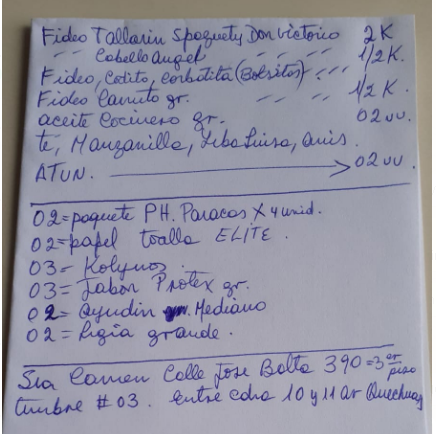 Fideo Tallarin Spaguety Don Victorio 2K
" " Cabello Angel " " " 1/2 K.
Fideo, Codito, Corbatita (Bolsitas) " " "
Fideo Canuto gr. " " " 1/2 K.
aceite Cocinero gr. 02 uu.
té, Manzanilla, Yba Luisa, anis.
ATUN. → 02 uu
02 = paquete PH. Paracas X 4 unid.
02 = papel toalla ELITE.
03 = Kolynos.
03 = Jabon Protex gr.
02 = ayudin Mediano
02 = Ligia grande.
Sra Carmen Calle Jose Balta 390 = 3er piso
timbre # 03. entre cdra 10 y 11 av Quechuas